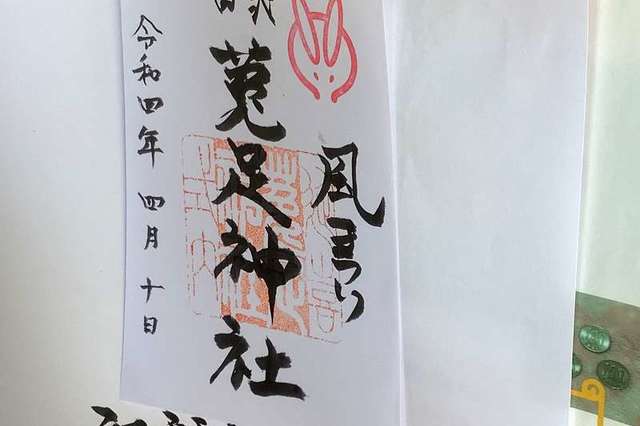 風まつり
菟足神社
令和四年 四月 十日